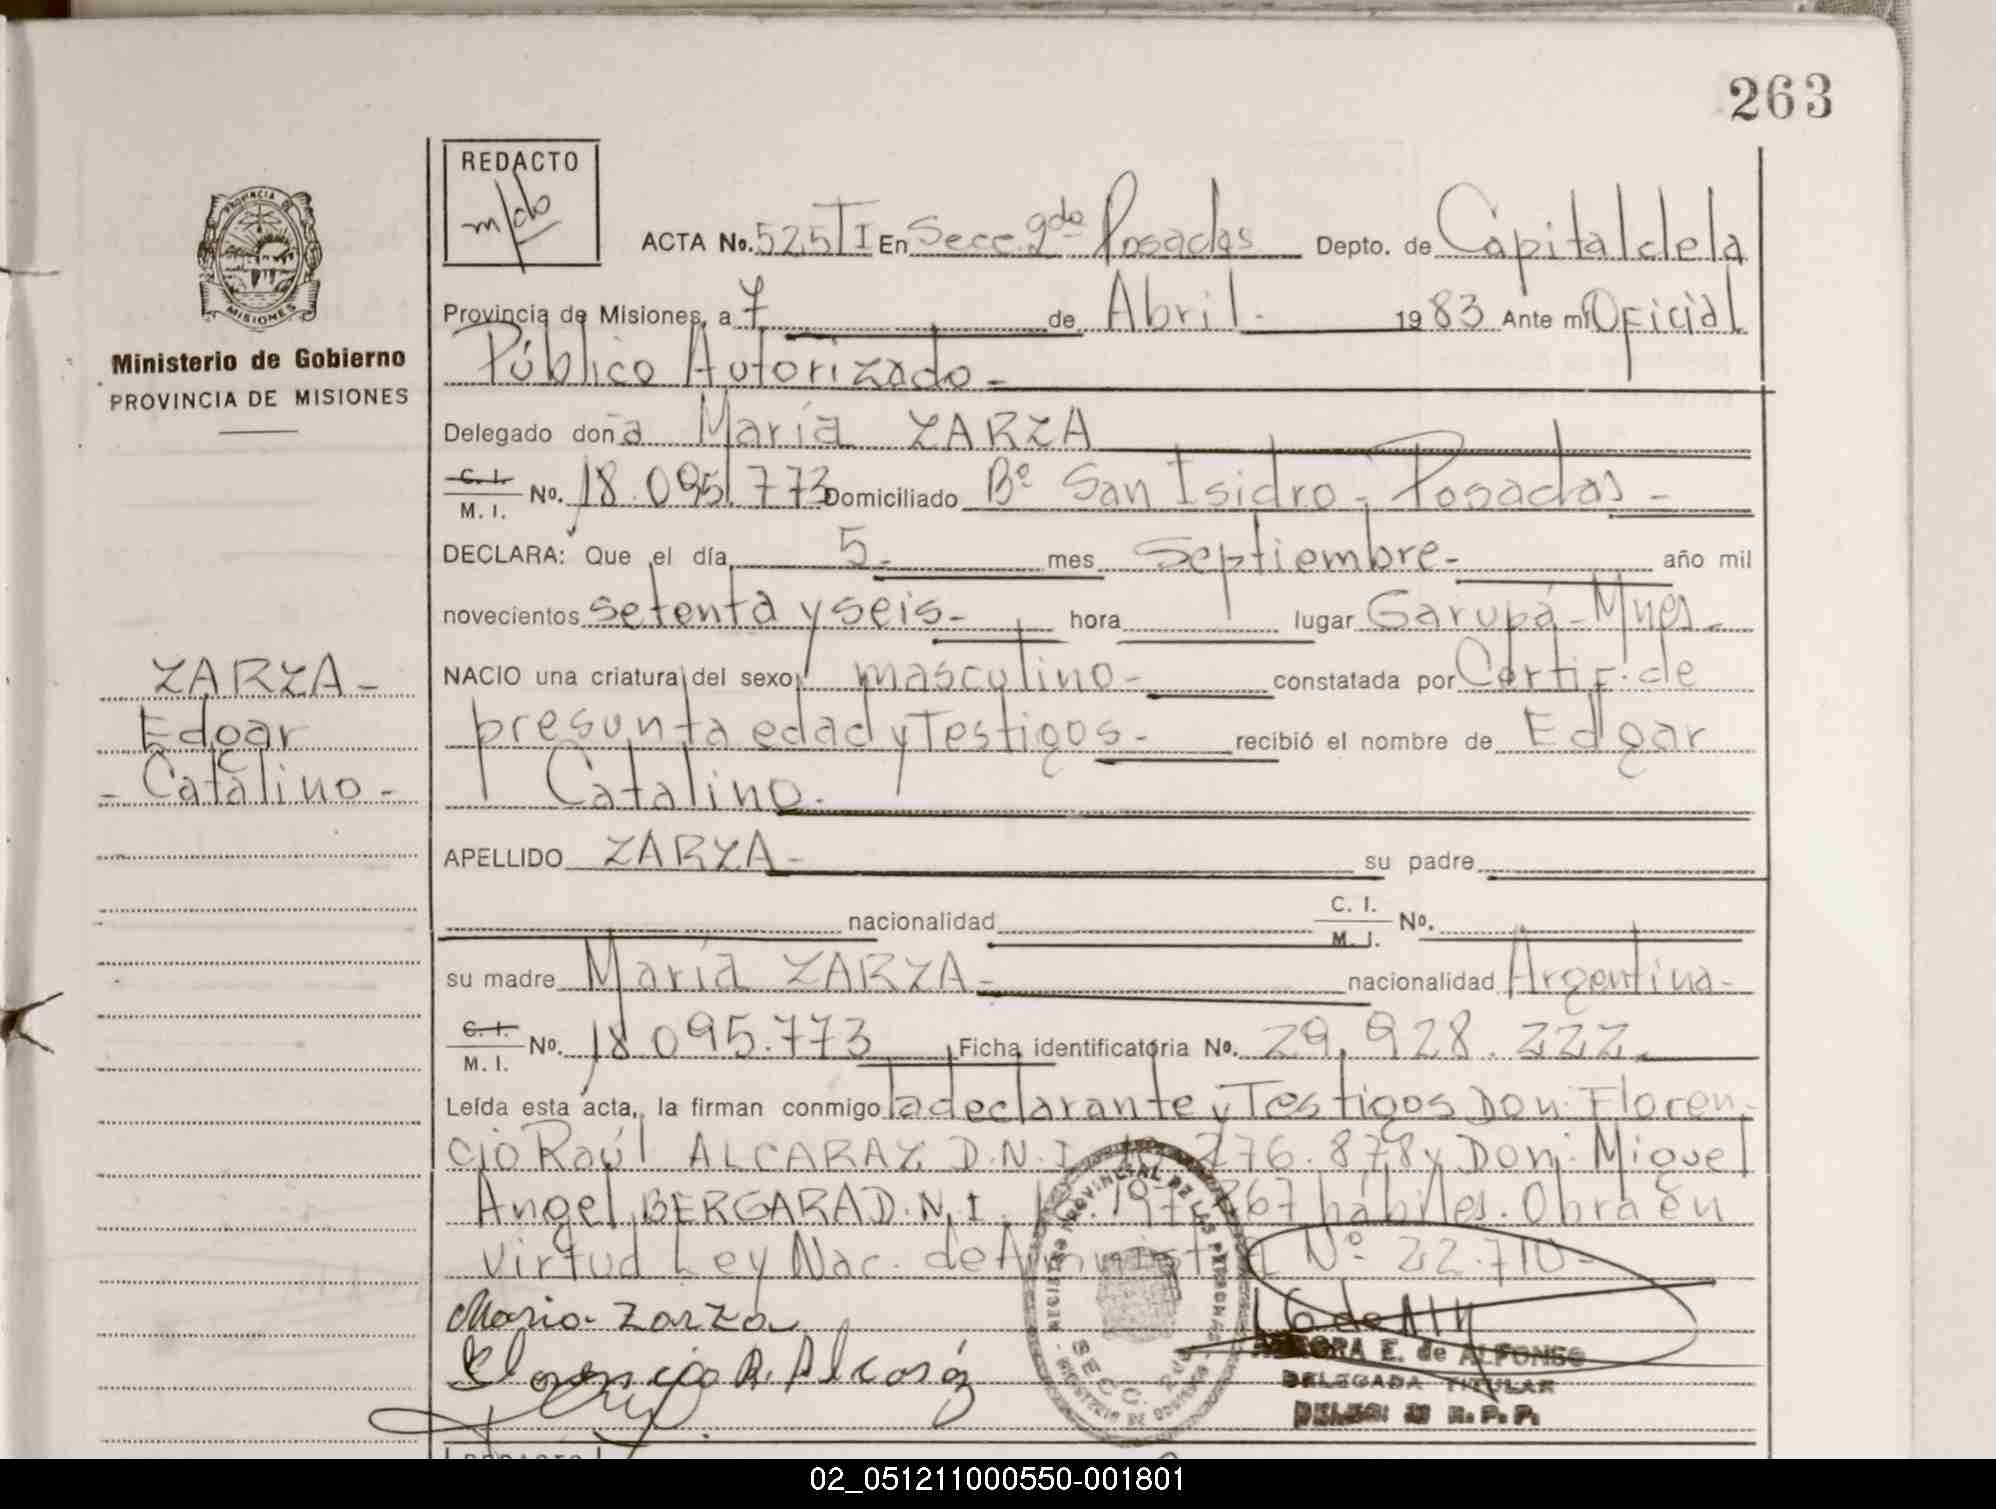 263
REDACTO
m/do
ACTA No. 525 T I En Secc. 2da Posadas Depto. de Capital de la
Provincia de Misiones, a 7 de Abril. 1983 Ante mí Oficial
Público Autorizado -
Ministerio de Gobierno
PROVINCIA DE MISIONES
Delegado doña María ZARZA
C. I.
M. I. No. 18.095.773 Domiciliado Bº San Isidro - Posadas -
DECLARA: Que el día 5- mes Septiembre- año mil
novecientos setenta y seis- hora lugar Garupá - Mnes -
ZARZA -
Edgar
- Catalino -
NACIO una criatura del sexo masculino- constatada por Certif. de
presunta edad y Testigos - recibió el nombre de Edgar
Catalino.
APELLIDO ZARZA - su padre
nacionalidad C. I.
M. I. No.
su madre María ZARZA - nacionalidad Argentina -
C. I.
M. I. No. 18.095.773 Ficha identificatoria No. 29.928.222.
Leída esta acta, la firman conmigo la declarante y Testigos Don: Floren-
cio Raúl ALCARAZ D.N.I. 276.878 y Don: Miguel
Angel BERGARA D.N.I. 197 867 hábiles. Obra en
virtud Ley Nac. de Amnistía Nº 22.710 -
Maria Zarza
Florencio R. Alcaráz
REGISTRO PROVINCIAL DE LAS PERSONAS
SECC. 2da
E. de ALFONSO
DELEGADA TITULAR
R. P. P.
REDACTO
02_051211000550-001801